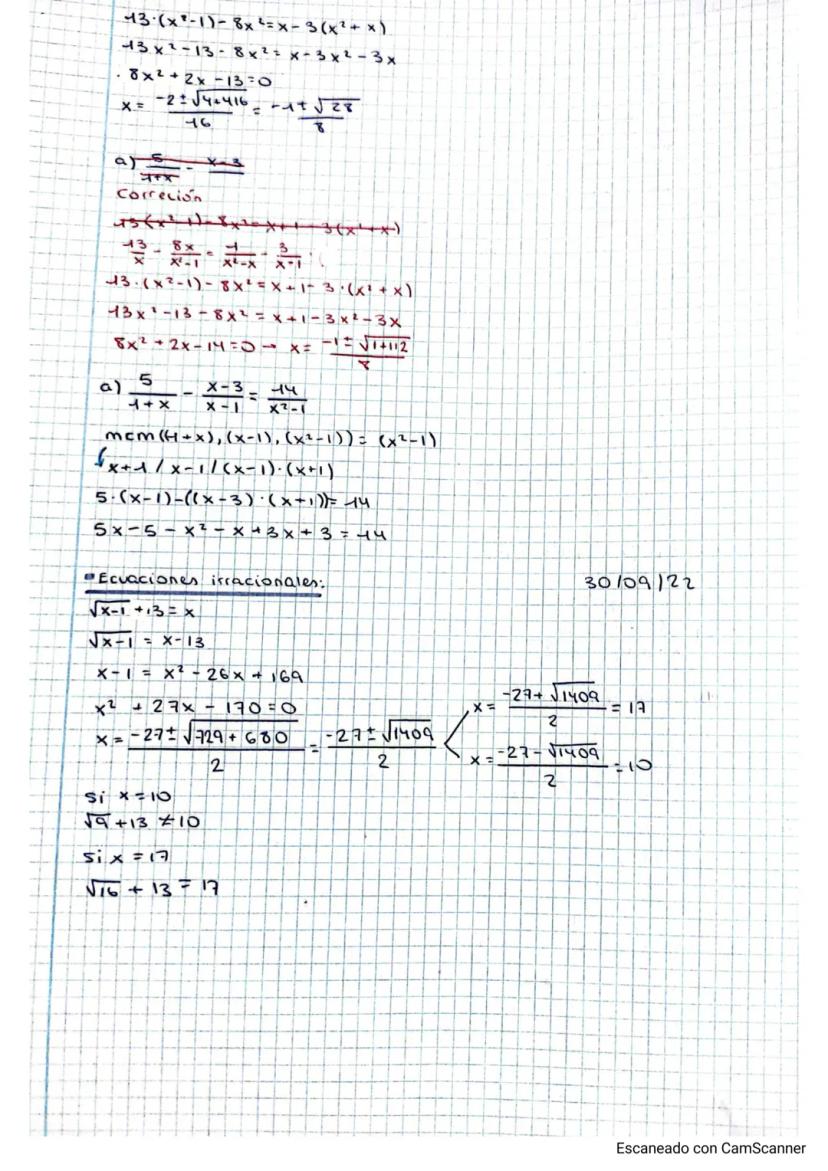 13·(x²-1)-8x²=x-3(x²+x)
13x²-13-8x²=x-3x²-3x
8x²+2x-13=0
x= (-2±√4+416)/16 = (-1±√28)/8
a) 5/(1+x) - (x-3)/
Correlión
13(x²-1)-8x²=x+1-3(x²+x)
13/x - 8x/(x²-1) = 1/(x²-x) - 3/(x-1)
13·(x²-1)-8x²=x+1-3·(x²+x)
13x²-13-8x²=x+1-3x²-3x
8x²+2x-14=0→ x= (-1±√1+112)/8
a) 5/(1+x) - (x-3)/(x-1) = 14/(x²-1)
mcm(1+x),(x-1),(x²-1))=(x²-1)
x+1/x-1/(x-1)·(x+1)
5·(x-1)-((x-3)·(x+1))=14
5x-5-x²-x+3x+3=14
Ecuaciones irracionales:
30/09/22
√x-1+13=x
√x-1=x-13
x-1=x²-26x+169
x²+27x-170=0
x= (-27±√729+680)/2 = (-27±√1409)/2
x= (-27+√1409)/2 =17
x= (-27-√1409)/2 =10
si x=10
√9+13≠10
si x=17
√16+13=17
Escaneado con CamScanner